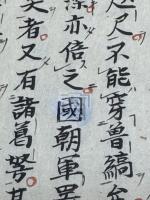 迟尺不能穿魯縞
亦倍之國朝軍器
者又有諸葛弩